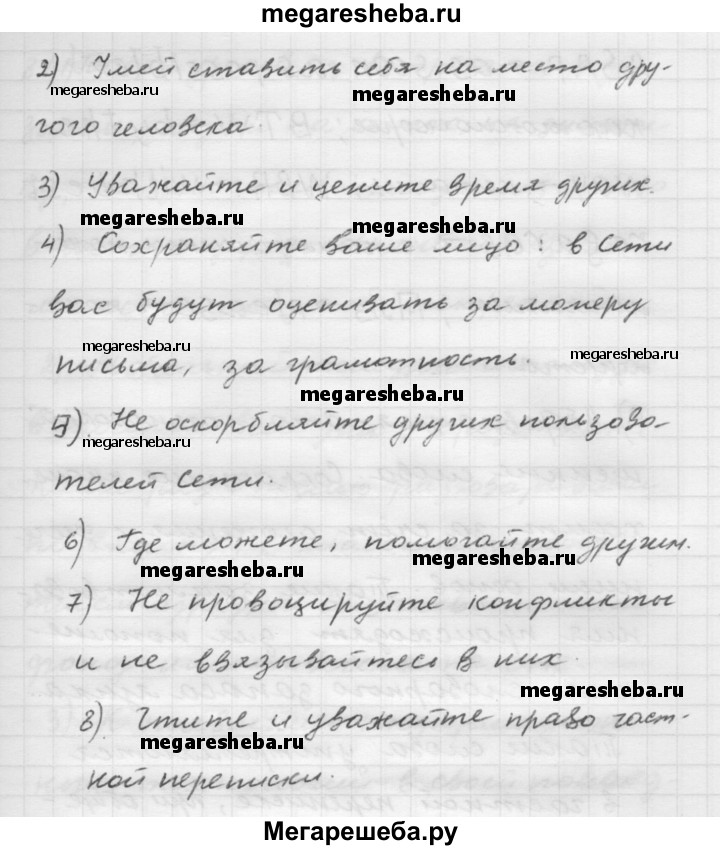 megaresheba.ru
2) Умей ставить себя на место дру-
megaresheba.ru megaresheba.ru
гого человека.
3) Уважайте и цените время других.
megaresheba.ru megaresheba.ru
4) Сохраняйте ваше лицо: в Сети
вас будут оценивать за манеру
письма, за грамотность.
megaresheba.ru
megaresheba.ru
megaresheba.ru
5) Не оскорбляйте других пользова-
megaresheba.ru
телей Сети.
6) Где можете, помогайте другим.
megaresheba.ru megaresheba.ru
7) Не провоцируйте конфликты
и не ввязывайтесь в них.
megaresheba.ru
8) Чтите и уважайте право част-
megaresheba.ru
ной переписки.
Мегарешеба.ру